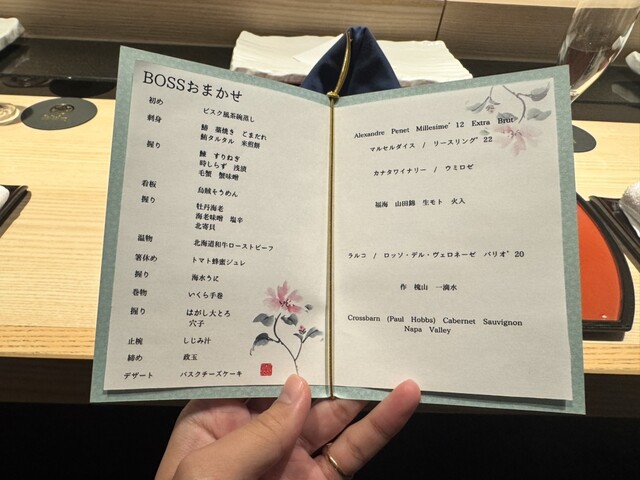 BOSSおまかせ
初め
ビスク風茶碗蒸し
刺身
鰆 藁焼き ごまだれ
鮪タルタル 米煎餅
握り
鰊 すりねぎ
時しらず 浅漬
毛蟹 蟹味噌
看板
烏賊そうめん
握り
牡丹海老
海老味噌 塩辛
北寄貝
温物
北海道和牛ローストビーフ
箸休め
トマト蜂蜜ジュレ
握り
海水うに
巻物
いくら手巻
握り
はがし大とろ
穴子
止椀
しじみ汁
締め
政玉
デザート
バスクチーズケーキ
Alexandre Penet Millesime' 12 Extra Brut
マルセルダイス / リースリング' 22
カナタワイナリー / ウミロゼ
福海 山田錦 生モト 火入
ラルコ / ロッソ・デル・ヴェロネーゼ パリオ' 20
作 槐山 一滴水
Crossbarn (Paul Hobbs) Cabernet Sauvignon
Napa Valley